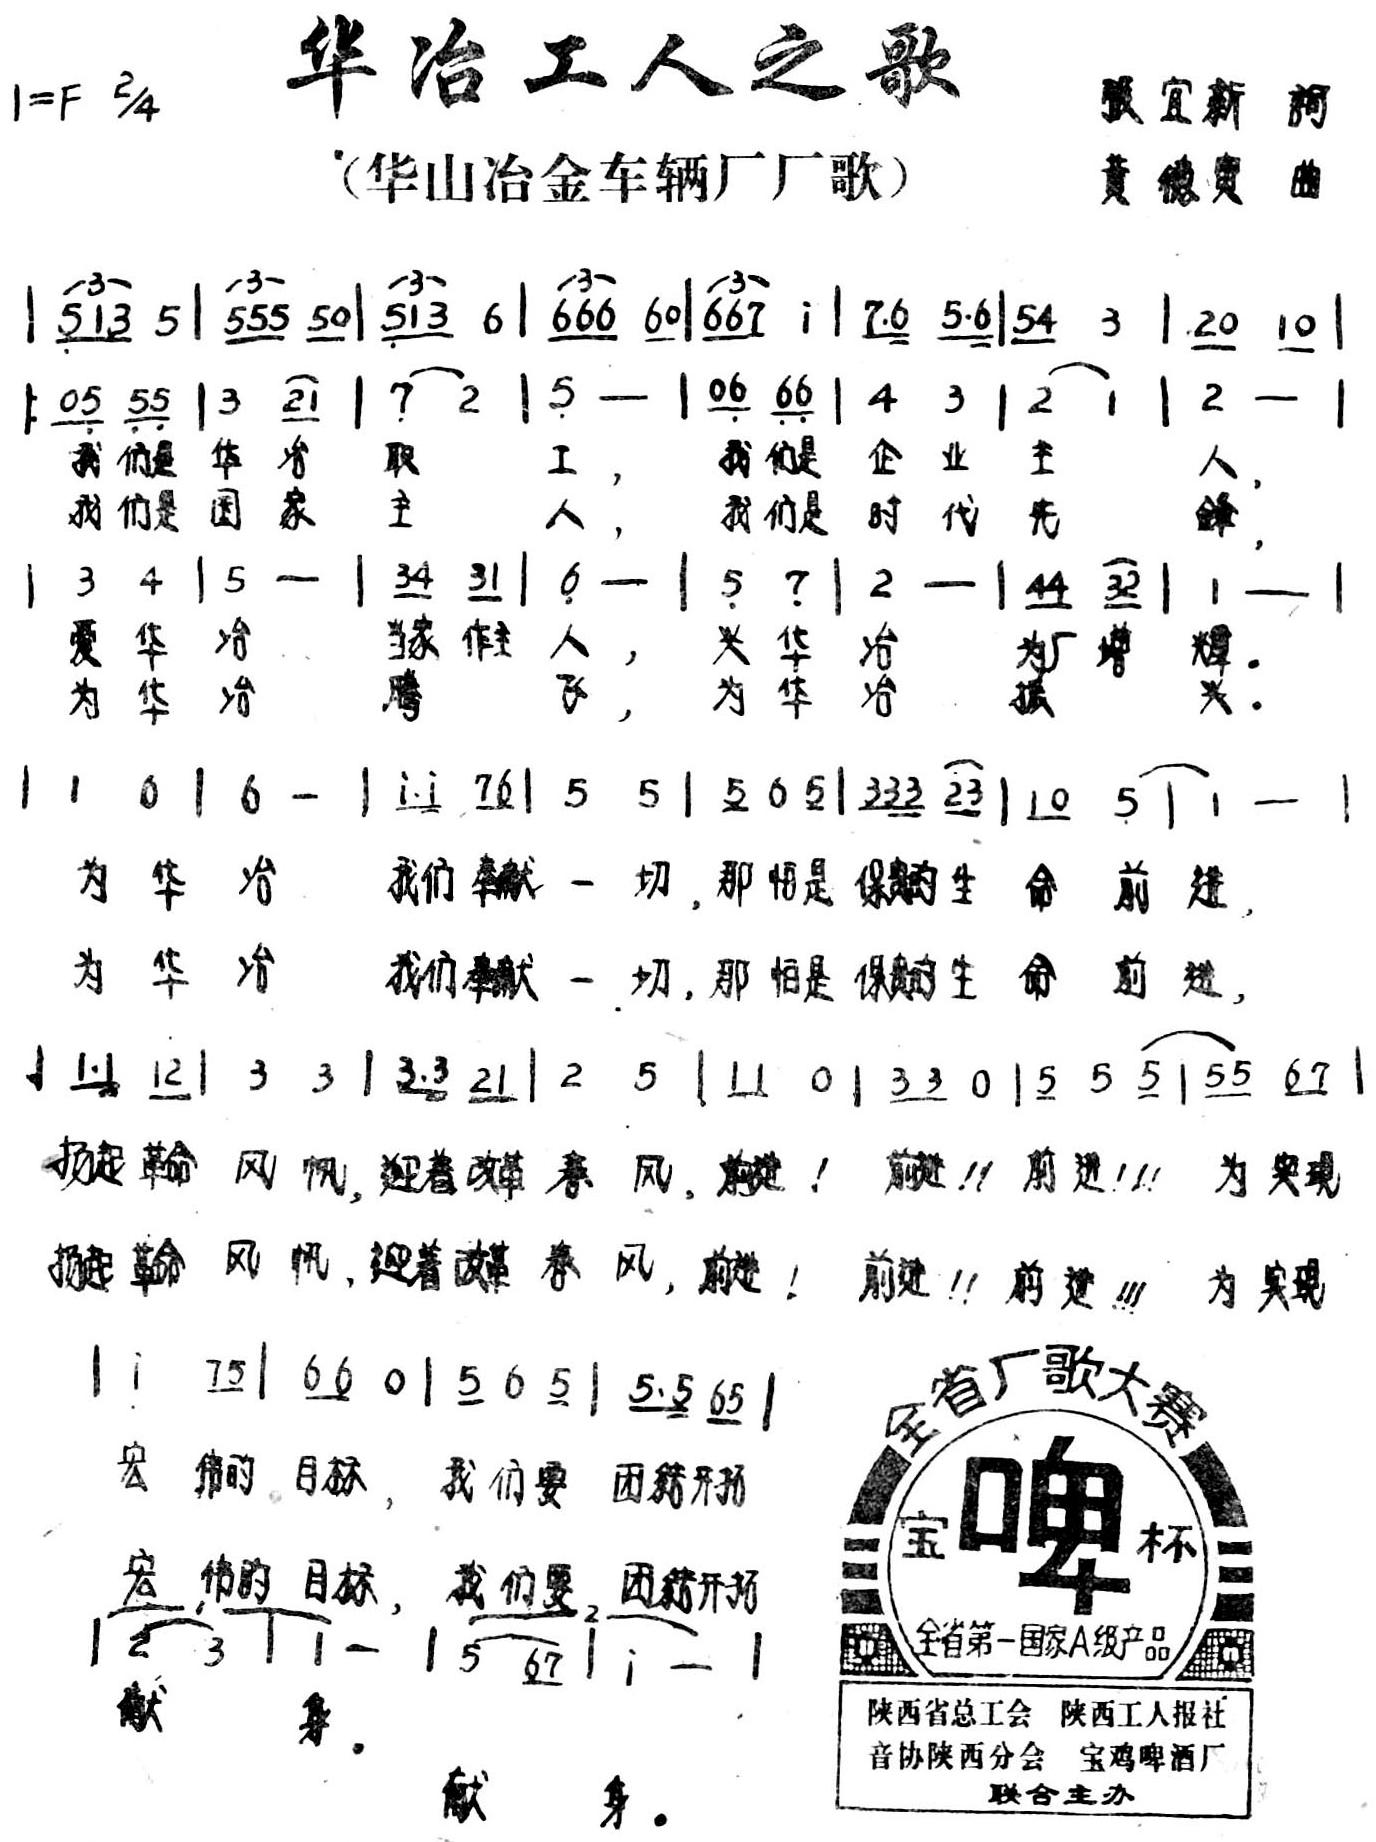 华冶工人之歌
1=F 2/4
张宜新 詞
(华山冶金车辆厂厂歌)
黄德寶 曲
| 513 5 | 555 50 | 513 6 | 666 60 | 667 i | 7·6 5·6 | 54 3 | 20 10 |
|: 05 55 | 3 21 | 7 2 | 5 — | 06 66 | 4 3 | 2 1 | 2 — |
我们是华冶职工，我们是企业主人，
我们是国家主人，我们是时代先鋒，
| 3 4 | 5 — | 34 31 | 6 — | 5 7 | 2 — | 44 32 | 1 — |
爱华冶当家作主人，兴华冶为厂增輝．
为华冶腾飞，为华冶振兴．
| 1 6 | 6 — | i·i 76 | 5 5 | 5 6 5 | 333 23 | 10 5 | 1 — |
为华冶我们奉献一切，那怕是保貴的生命前进，
为华冶我们奉献一切，那怕是保貴的生命前进，
| 1·1 12 | 3 3 | 3·3 21 | 2 5 | 11 0 | 33 0 | 5 5 5 | 55 67 |
扬起革命风帆，迎着改革春风，前进！前进!!前进!!!为实现
扬起革命风帆，迎着改革春风，前进！前进!!前进!!!为实现
| i 75 | 66 0 | 5 6 5 | 5·5 65 |
宏伟的目标，我们要团结开拓
宏伟的目标，我们要团结开拓
| 2 3 | 1 — | 5 67 | i — |
献身．
献身．
全省厂歌大赛
宝啤杯
全省第一国家A级产品
陕西省总工会 陕西工人报社
音协陕西分会 宝鸡啤酒厂
联合主办